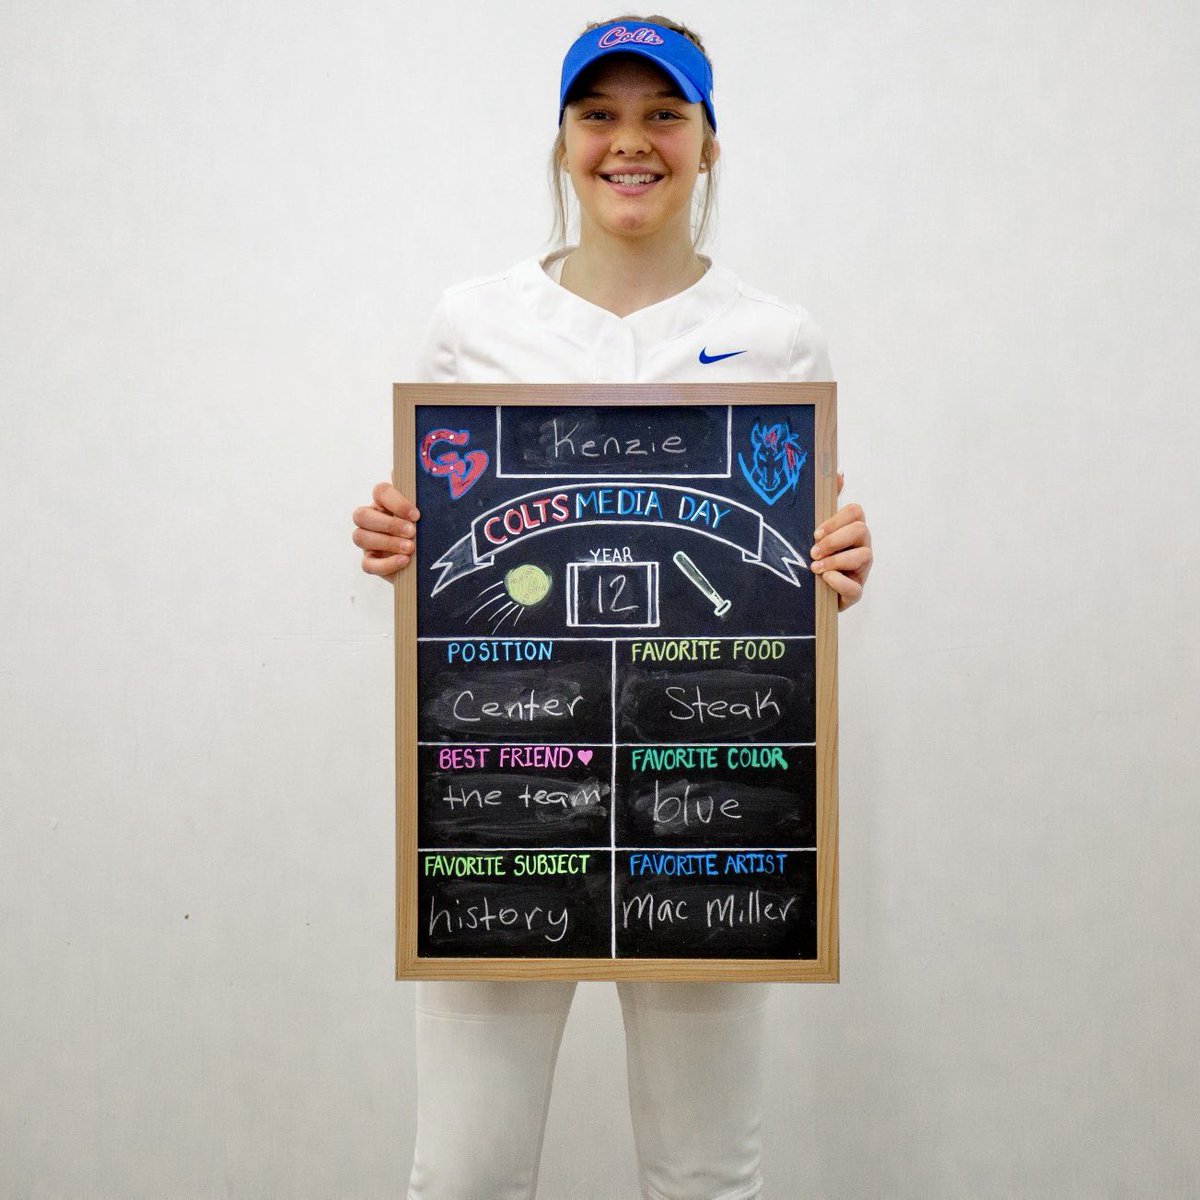 Colts
Kenzie
CV
COLTS MEDIA DAY
YEAR
12
POSITION
Center
FAVORITE FOOD
Steak
BEST FRIEND
the team
FAVORITE COLOR
blue
FAVORITE SUBJECT
history
FAVORITE ARTIST
Mac Miller